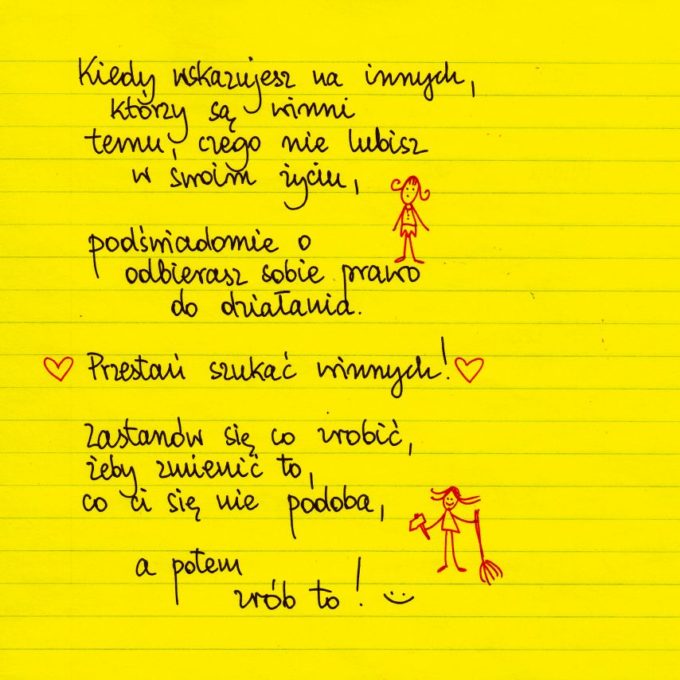 Kiedy wskazujesz na innych,
którzy są winni
temu, czego nie lubisz
w swoim życiu,
podświadomie o
odbierasz sobie prawo
do działania.
Przestań szukać winnych!
Zastanów się co zrobić,
żeby zmienić to,
co ci się nie podoba,
a potem
zrób to! :)